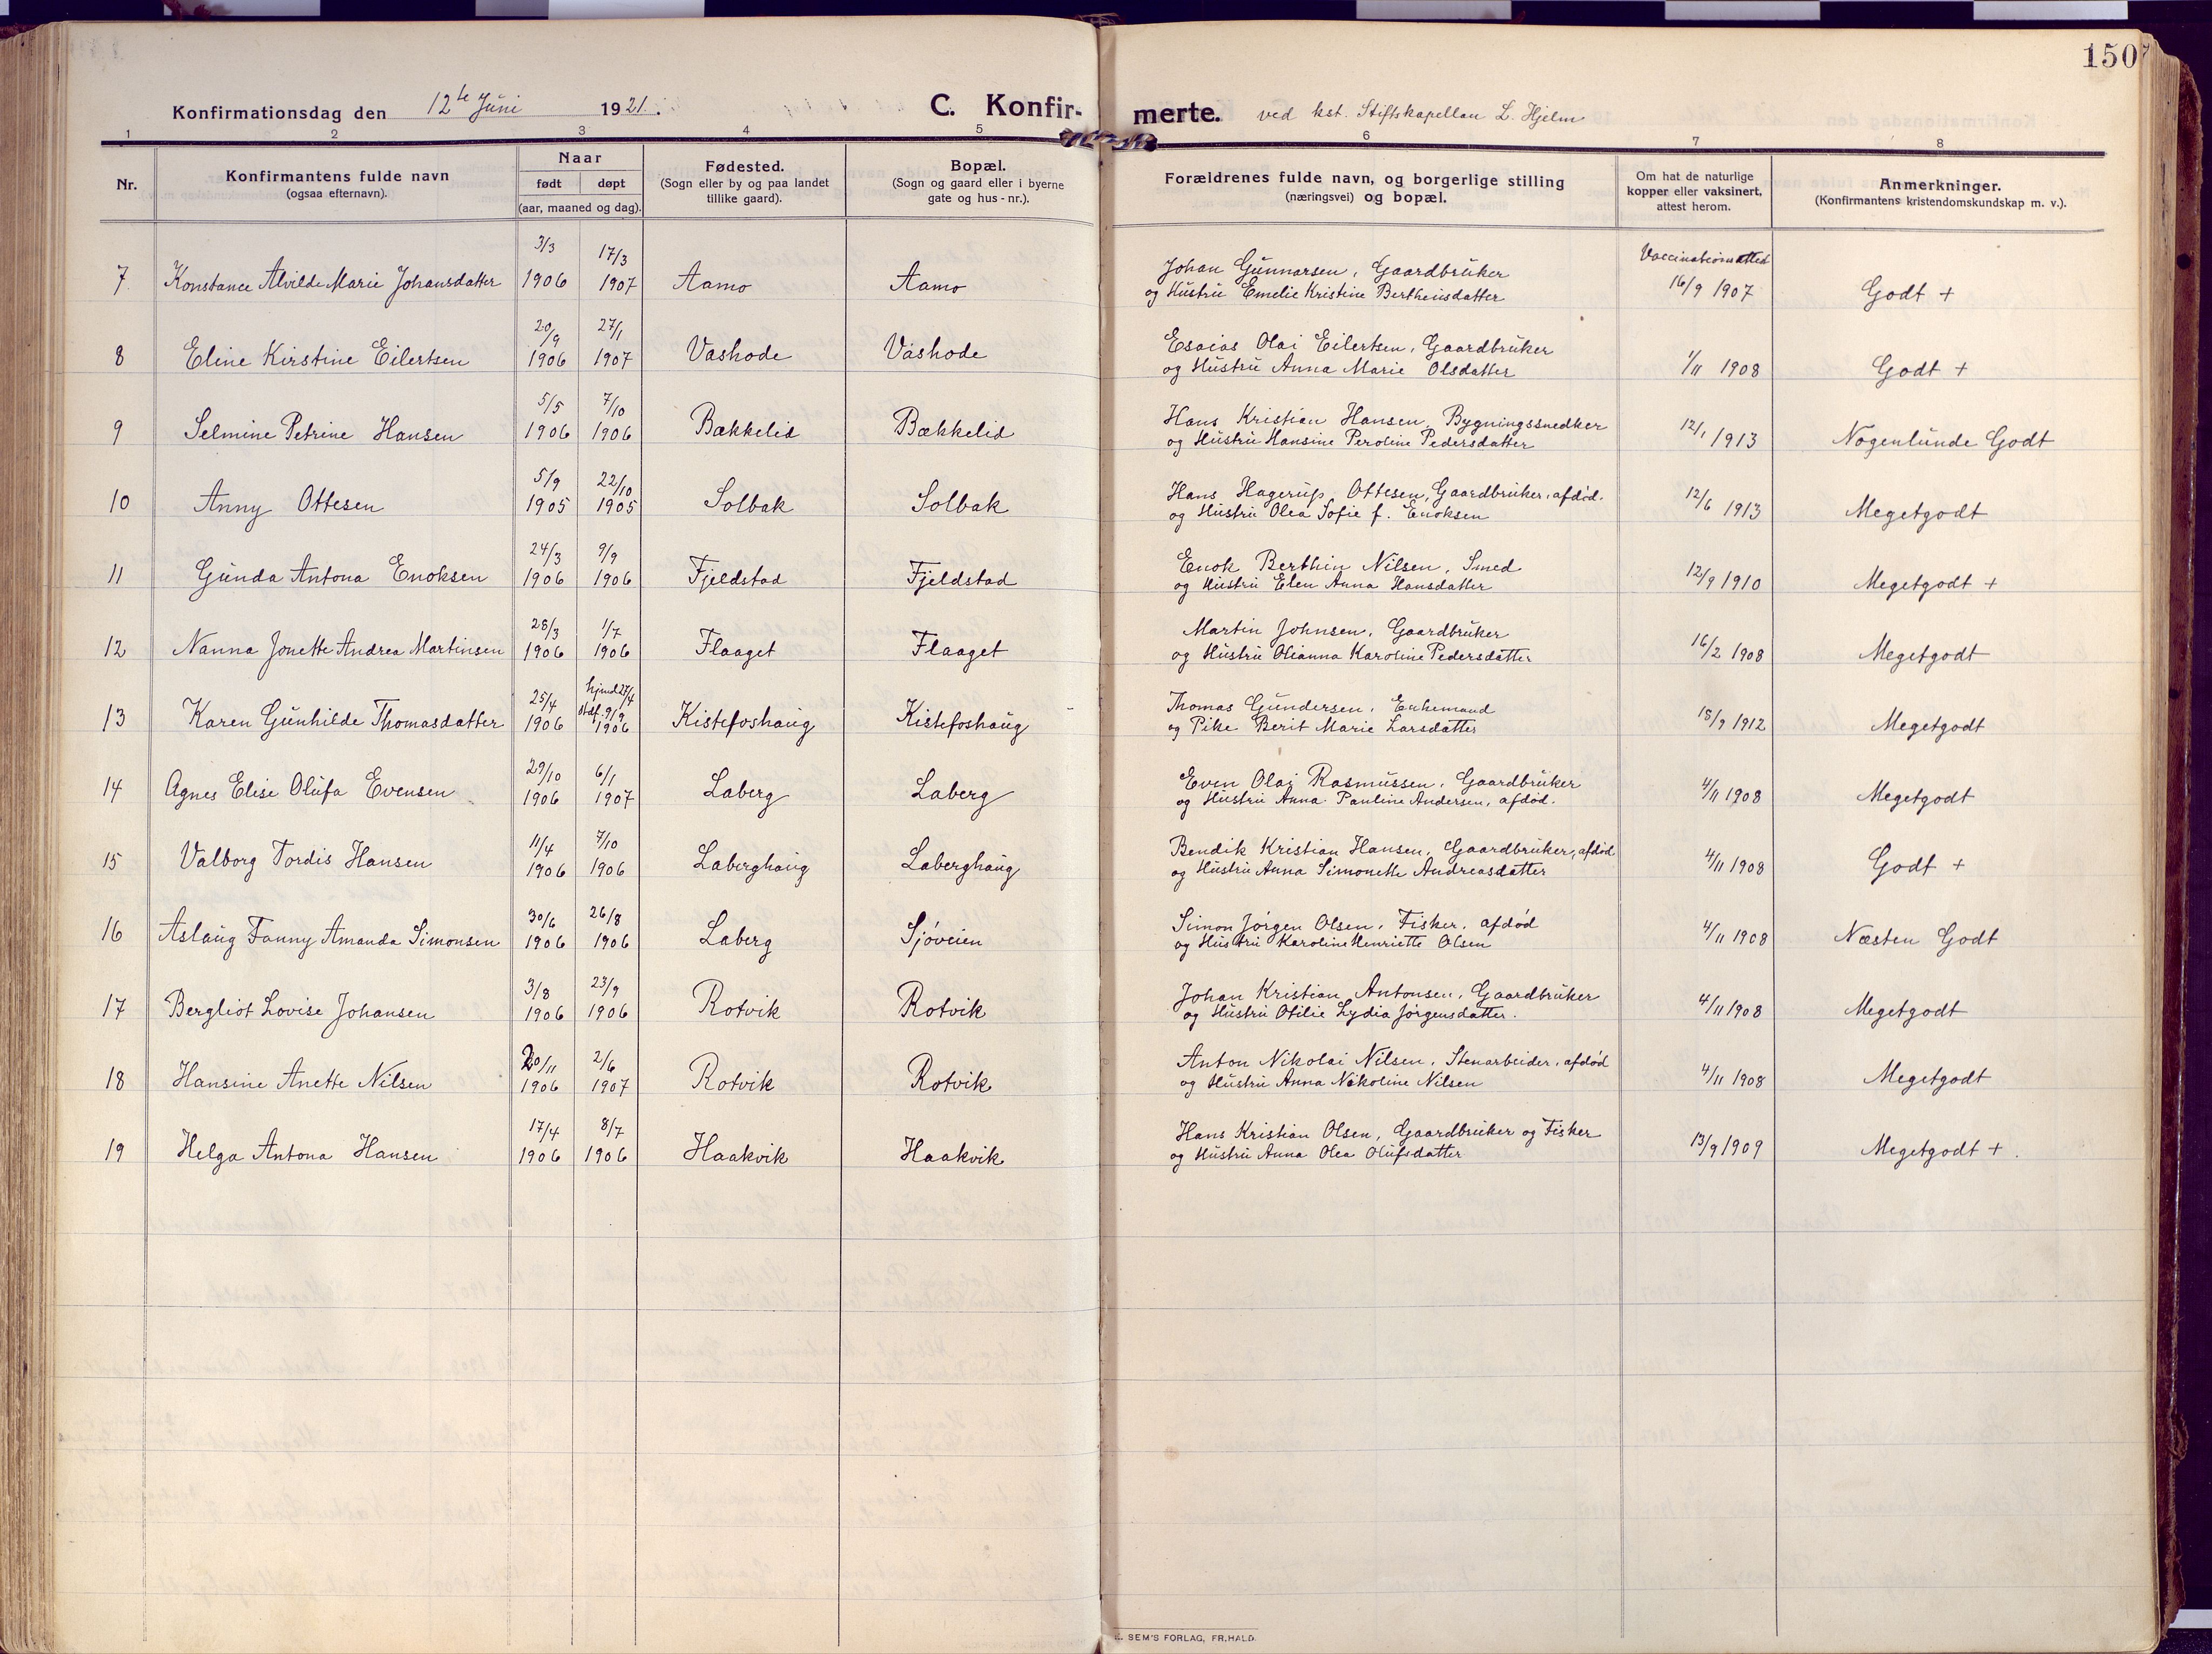 150
Konfirmationsdag den 12te Juni 1921. C. Konfirmerte. ved kst. Stiftskapellan L. Hjelm
1 2 3 4 5 6 7 8
Nr. Konfirmantens fulde navn (ogsaa efternavn). Naar født døpt (aar, maaned og dag). Fødested. (Sogn eller by og paa landet tillike gaard). Bopæl. (Sogn og gaard eller i byerne gate og hus-nr.). Forældrenes fulde navn, og borgerlige stilling (næringsvei) og bopæl. Om hat de naturlige kopper eller vaksinert, attest herom. Anmerkninger. (Konfirmantens kristendomskundskap m. v.).
7. Konstance Alvilde Marie Johansdatter 3/3 1906 17/3 1907 Aamo Aamo Johan Gunnarsen, Gaardbruker
og Hustru Emelie Kristine Bertheusdatter Vaccinationsatted 16/9 1907 Godt +
8 Eline Kirstine Eilertsen 20/9 1906 27/1 1907 Vashode Vashode Esaias Olai Eilertsen, Gaardbruker
og Hustru Anna Marie Olsdatter 1/11 1908 Godt +
9 Selmine Petrine Hansen 5/5 1906 7/10 1906 Bækkelid Bækkelid Hans Kristian Hansen, Bygningssnedker
og Hustru Hansine Peroline Pedersdatter 12/1 1913 Nogenlunde Godt
10 Anny Ottesen 5/9 1905 22/10 1905 Solbak Solbak Hans Hagerup Ottesen, Gaardbruker, afdød.
og Hustru Olea Sofie f. Enoksen 12/6 1913 Megetgodt
11 Gunda Antona Enoksen 24/3 1906 9/9 1906 Fjeldstad Fjeldstad Enok Berthin Nilsen, Smed
og Hustru Elen Anna Hansdatter 12/9 1910 Megetgodt +
12 Nanna Jonette Andrea Martinsen 28/3 1906 1/7 1906 Flaaget Flaaget Martin Johnsen, Gaardbruker
og Hustru Olianna Karoline Pedersdatter 16/2 1908 Megetgodt
13 Karen Gunhilde Thomasdatter 25/4 1906 hjmd 27/4 stdf. 9/9 1906 Kistefoshaug Kistefoshaug Thomas Gundersen, Enkemand
og Pike Berit Marie Larsdatter 18/9 1912 Megetgodt
14 Agnes Elise Olufa Evensen 29/10 1906 6/1 1907 Laberg Laberg Even Olai Rasmussen, Gaardbruker
og Hustru Anna Pauline Andersen, afdød. 4/11 1908 Megetgodt
15 Valborg Tordis Hansen 11/4 1906 7/10 1906 Laberghaug Laberghaug Bendik Kristian Hansen, Gaardbruker, afdød
og Hustru Anna Simonette Andreasdatter 4/11 1908 Godt +
16 Aslaug Fanny Amanda Simonsen 30/6 1906 26/8 1906 Laberg Sjøveien Simon Jørgen Olsen, Fisker, afdød
og Hustru Karoline Henriette Olsen 4/11 1908 Næsten Godt
17 Bergliot Lovise Johansen 3/8 1906 23/9 1906 Rotvik Rotvik Johan Kristian Antonsen, Gaardbruker
og Hustru Otilie Lydia Jørgensdatter. 4/11 1908 Megetgodt
18 Hansine Anette Nilsen 20/11 1906 2/6 1907 Rotvik Rotvik Anton Nikolai Nilsen, Stenarbeider, afdød
og Hustru Anna Nikoline Nilsen 4/11 1908 Megetgodt
19 Helga Antona Hansen 17/4 1906 8/7 1906 Haakvik Haakvik Hans Kristian Olsen, Gaardbruker og Fisker
og Hustru Anna Olea Olufsdatter 13/9 1909 Megetgodt +.
E. SEM'S FORLAG, FR.HALD.